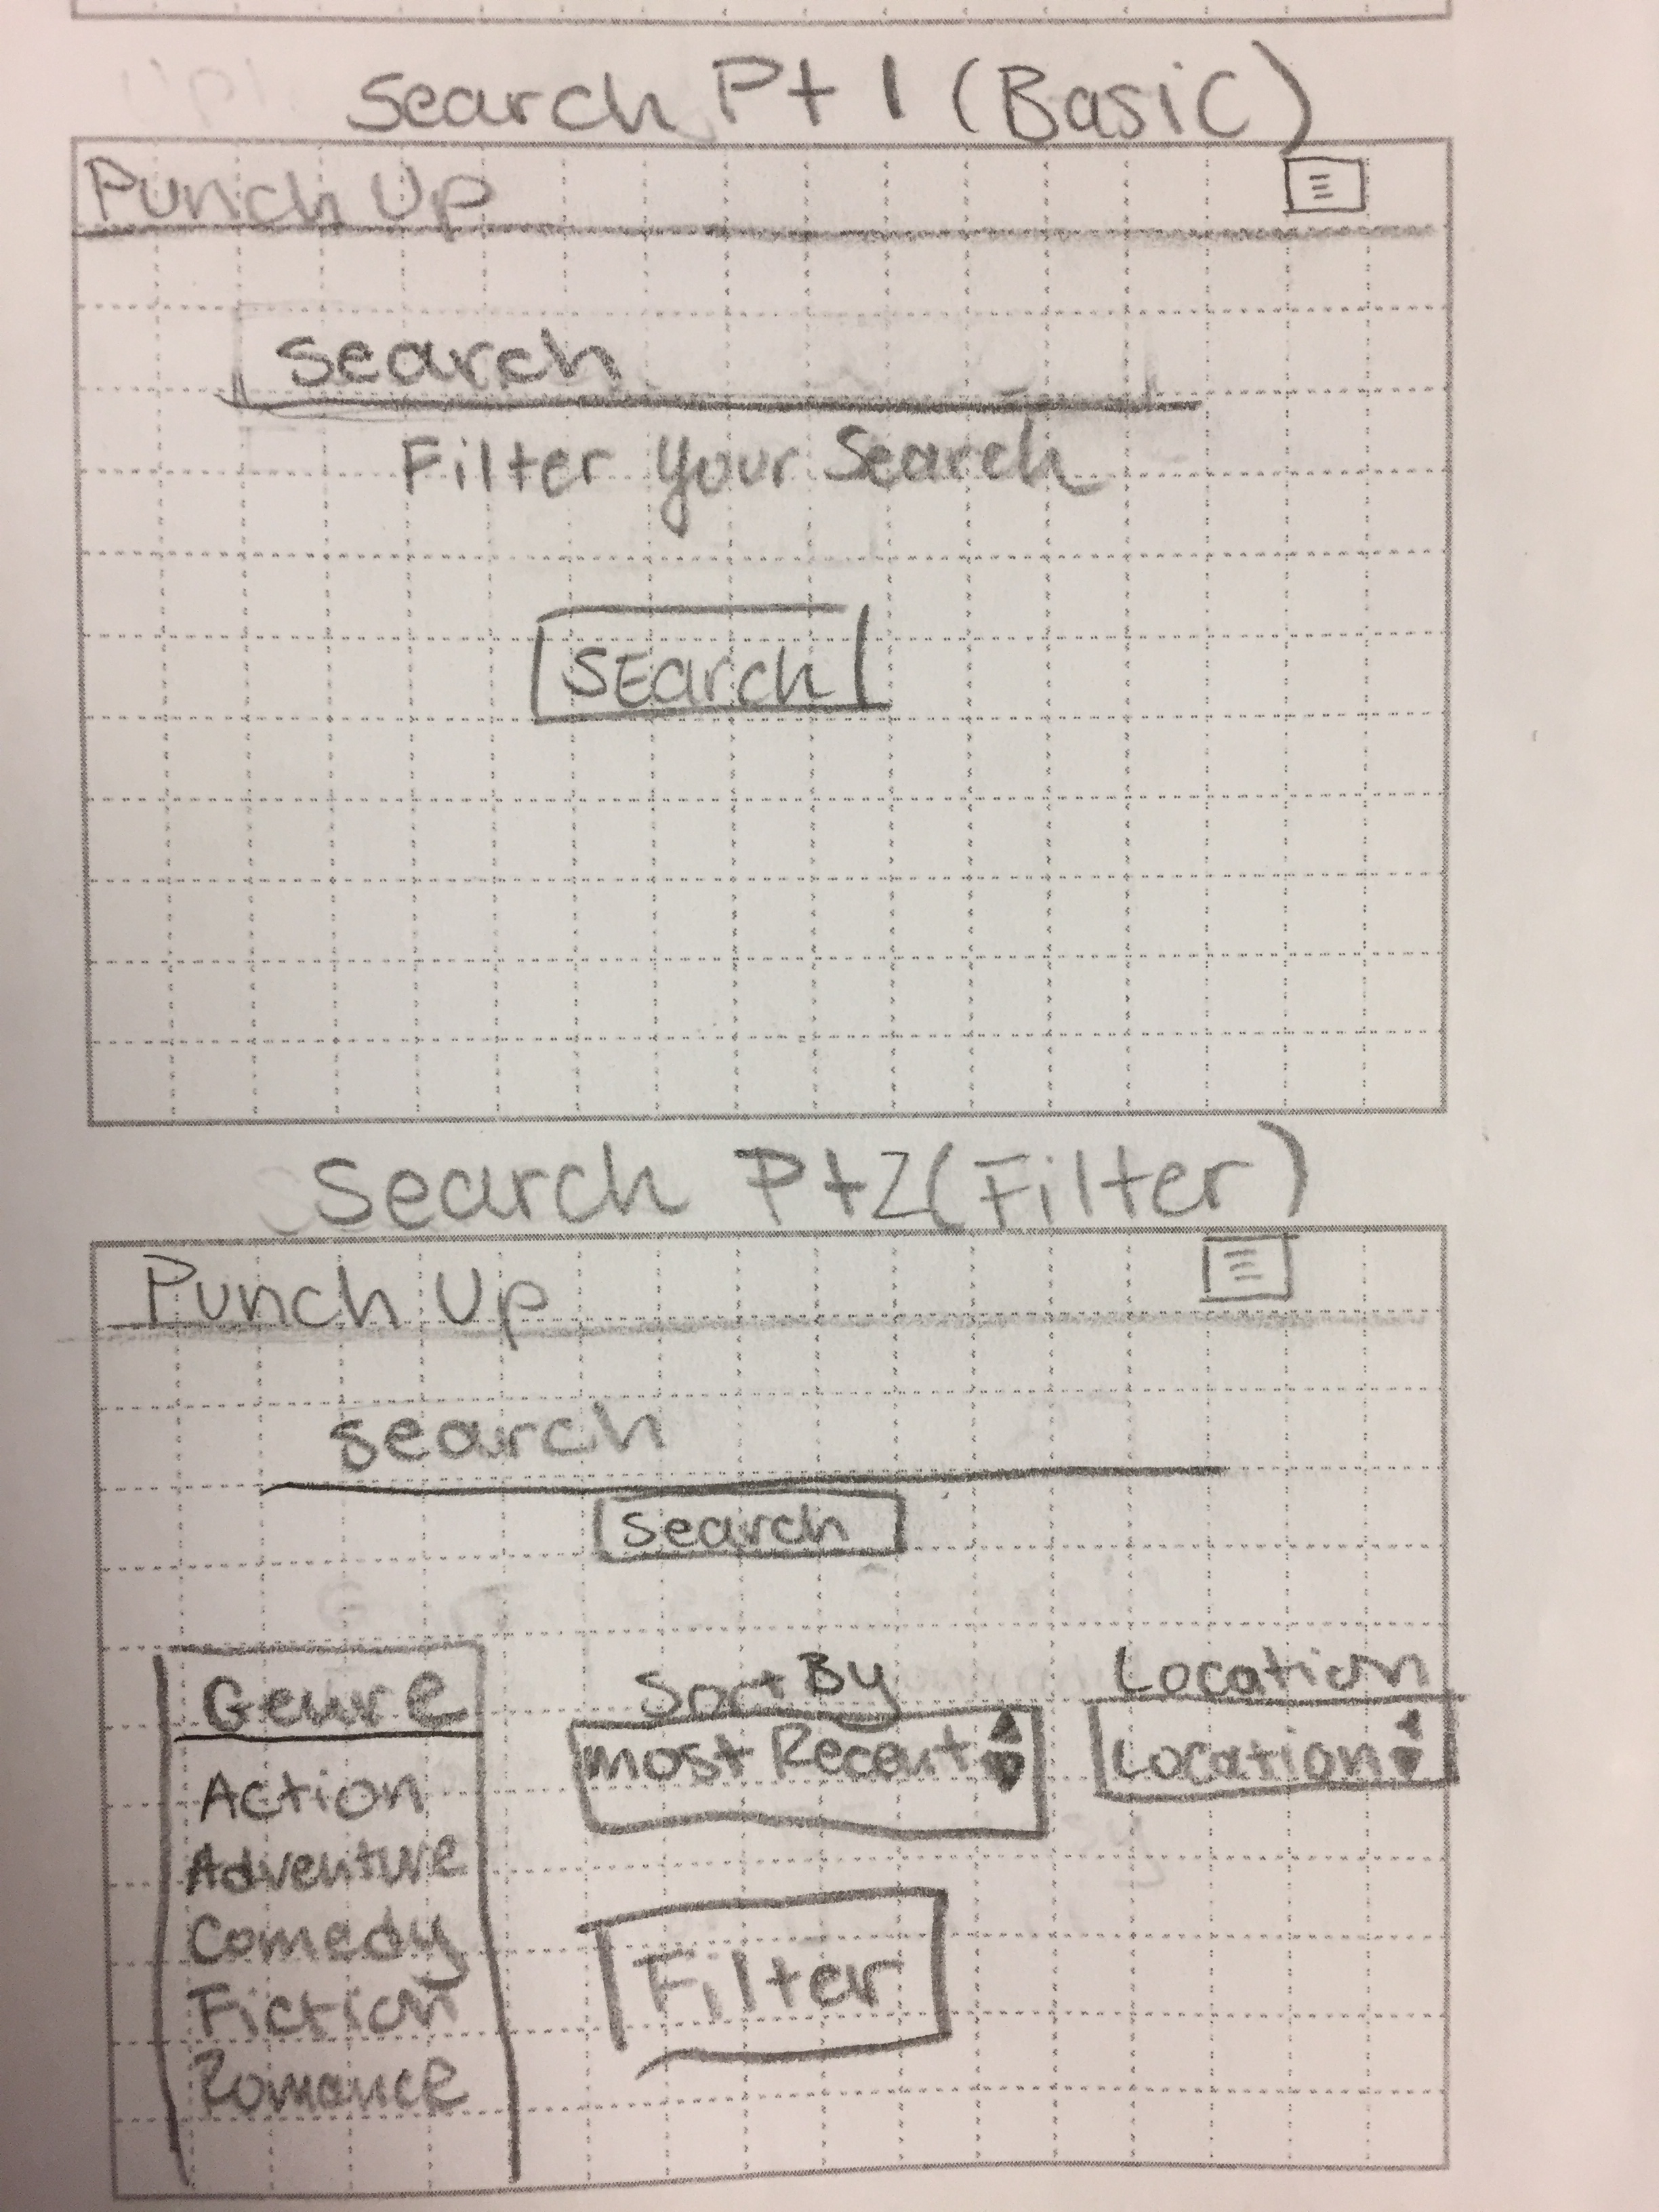 Search Pt 1 (Basic)
Punch Up
search
Filter Your Search
SEarch
Search Pt2 (Filter)
Punch Up
search
Search
Genre
Action
Adventure
Comedy
Fiction
Romance
Sort By
most Recent
Location
Location
Filter